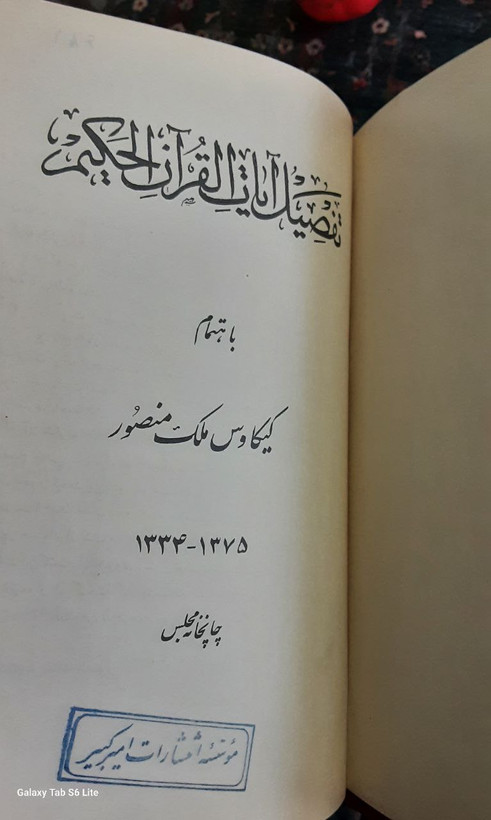 تفصیل آیات القرآن الحکیم
باهتمام
کیکاوس ملک منصور
۱۳۷۵-۱۳۳۴
چاپخانه مجلس
مؤسسه انتشارات امیرکبیر
Galaxy Tab S6 Lite